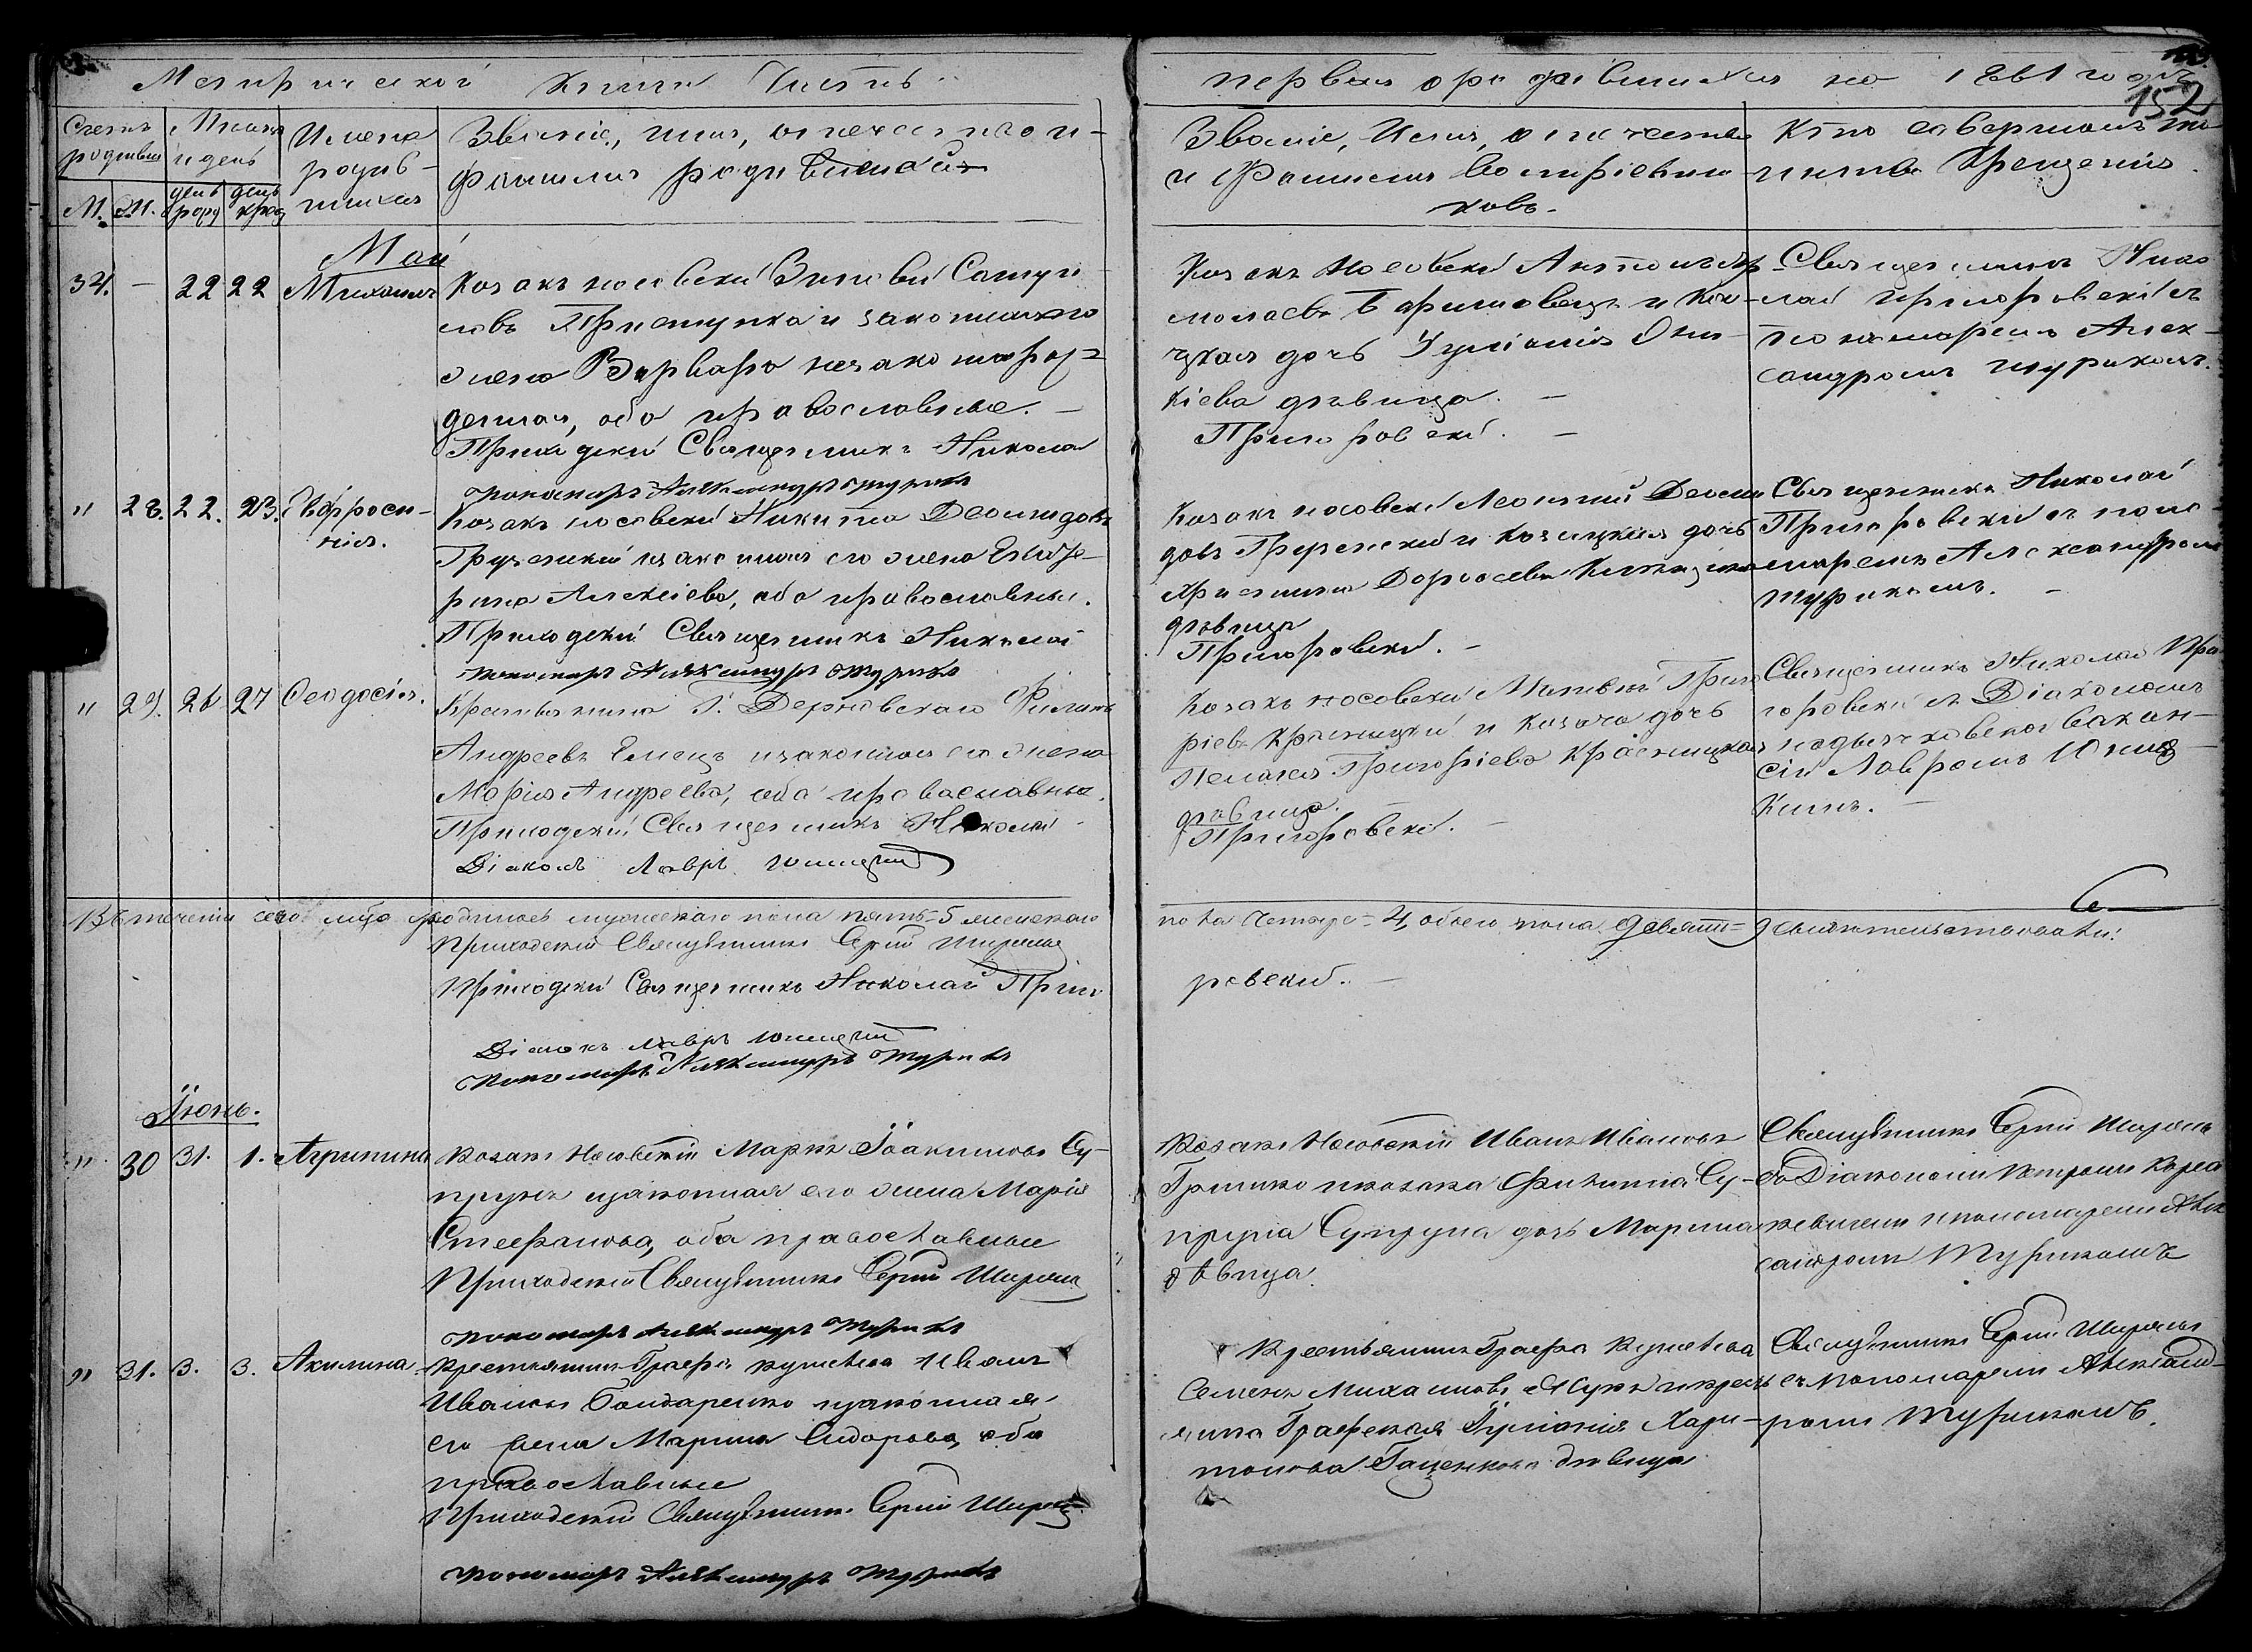 Метрической книги Часть
первая о родившихся на 1861 годъ
152
Счетъ родившихся
Мѣсяцъ и день
Имена родив-
шихся
Званіе, имя, отечество и
фамилия родителей
М. Ж. день рожд день крещ
Званіе, Имя, отечество
и Фамилия воспріемни-
ковъ.
Кто совершалъ та-
инство Крещенія
Май
34. — 22 22 Михаилъ
Козакъ носовскій Зиновій Самуи-
ловъ Приступка и законная его
жена Варвара незаконорож-
денная, оба православные. —
Приходскій Священникъ Николай
пономарь Александръ Турикъ
Козакъ Носовскій Антоній
и Коза-
чкая дочь Іуліанія
кіева дѣвица. —
Пригоровскій. —
Священникъ Нико-
лай Пригоровскій съ
пономаремъ Алек-
сандромъ Турикомъ.
" 28. 22. 23. Евфроси-
нія.
Козакъ носовскій Никита Деомидовъ
и законная его жена Екате-
рина Алексіева, оба православные.
Приходскій Священникъ Николай
пономарь Александръ Турикъ
Козакъ носовскій Леонтій Деоми-
довъ и козацкая дочь
Христина Доросева
дѣвица
Пригоровскій. —
Священникъ Николай
Пригоровскій съ поно-
маремъ Александромъ
Турикомъ. —
" 29. 26 27 Феодосія.
Крестьянинъ Г. Дерновскаго Филипъ
Андреевъ Емецъ и законная его жена
Марія Андреева, оба православные.
Приходскій Священникъ Николай
Діаконъ Лавръ Юницкій
Козакъ носовскій Матвей Григо-
ріевъ Красницкій и козача дочь
Пелагея Григоріева Красницкая
дѣвица.
Пригоровскій. —
Священникъ Николай При-
горовскій съ Діакономъ
на дьячковской вакан-
сіи Лавромъ Юниц-
кимъ. —
Въ теченіи сего мца родилось мужескаго пола пять = 5 женскаго
пола четыре = 4, обоего пола девять = 9 свидѣтельствовали:
Приходскій Священникъ Сергій Ширяевъ
Приходскій Священникъ Николай Приго-
ровскій. —
Діаконъ Лавръ Юницкій
Пономарь Александръ Турикъ
Іюнь.
" 30 31. 1. Агрипина
Козакъ Носовскій Маркъ Іоакимовъ Су-
прунъ и законная его жена Марія
Стефанова, оба православные
Приходскій Священникъ Сергій Ширяевъ
Пономарь Александръ Турикъ
Козакъ Носовскій Иванъ Ивановъ
Гришко и козака Филиппа Су-
пруна Супруна дочь Марина
дѣвица.
Священникъ Сергій Ширяевъ
съ Діакономъ Петромъ Корса-
кевичемъ и пономаремъ Алек-
сандромъ Турикомъ
" 31. 3. 3. Акилина
Крестьянинъ Графа Кушелева Иванъ
Ивановъ Бондаренко и законная
его жена Марина Сидорова, оба
православные
Приходскій Священникъ Сергій Ширяевъ
Пономарь Александръ Турикъ
Крестьянинъ Графа Кушелева
Семенъ Михаиловъ и кресть-
янка Графская Іуліанія Хари-
тонова Гаценкова дѣвица
Священникъ Сергій Ширяевъ
съ Пономаремъ Александ-
ромъ Турикомъ.